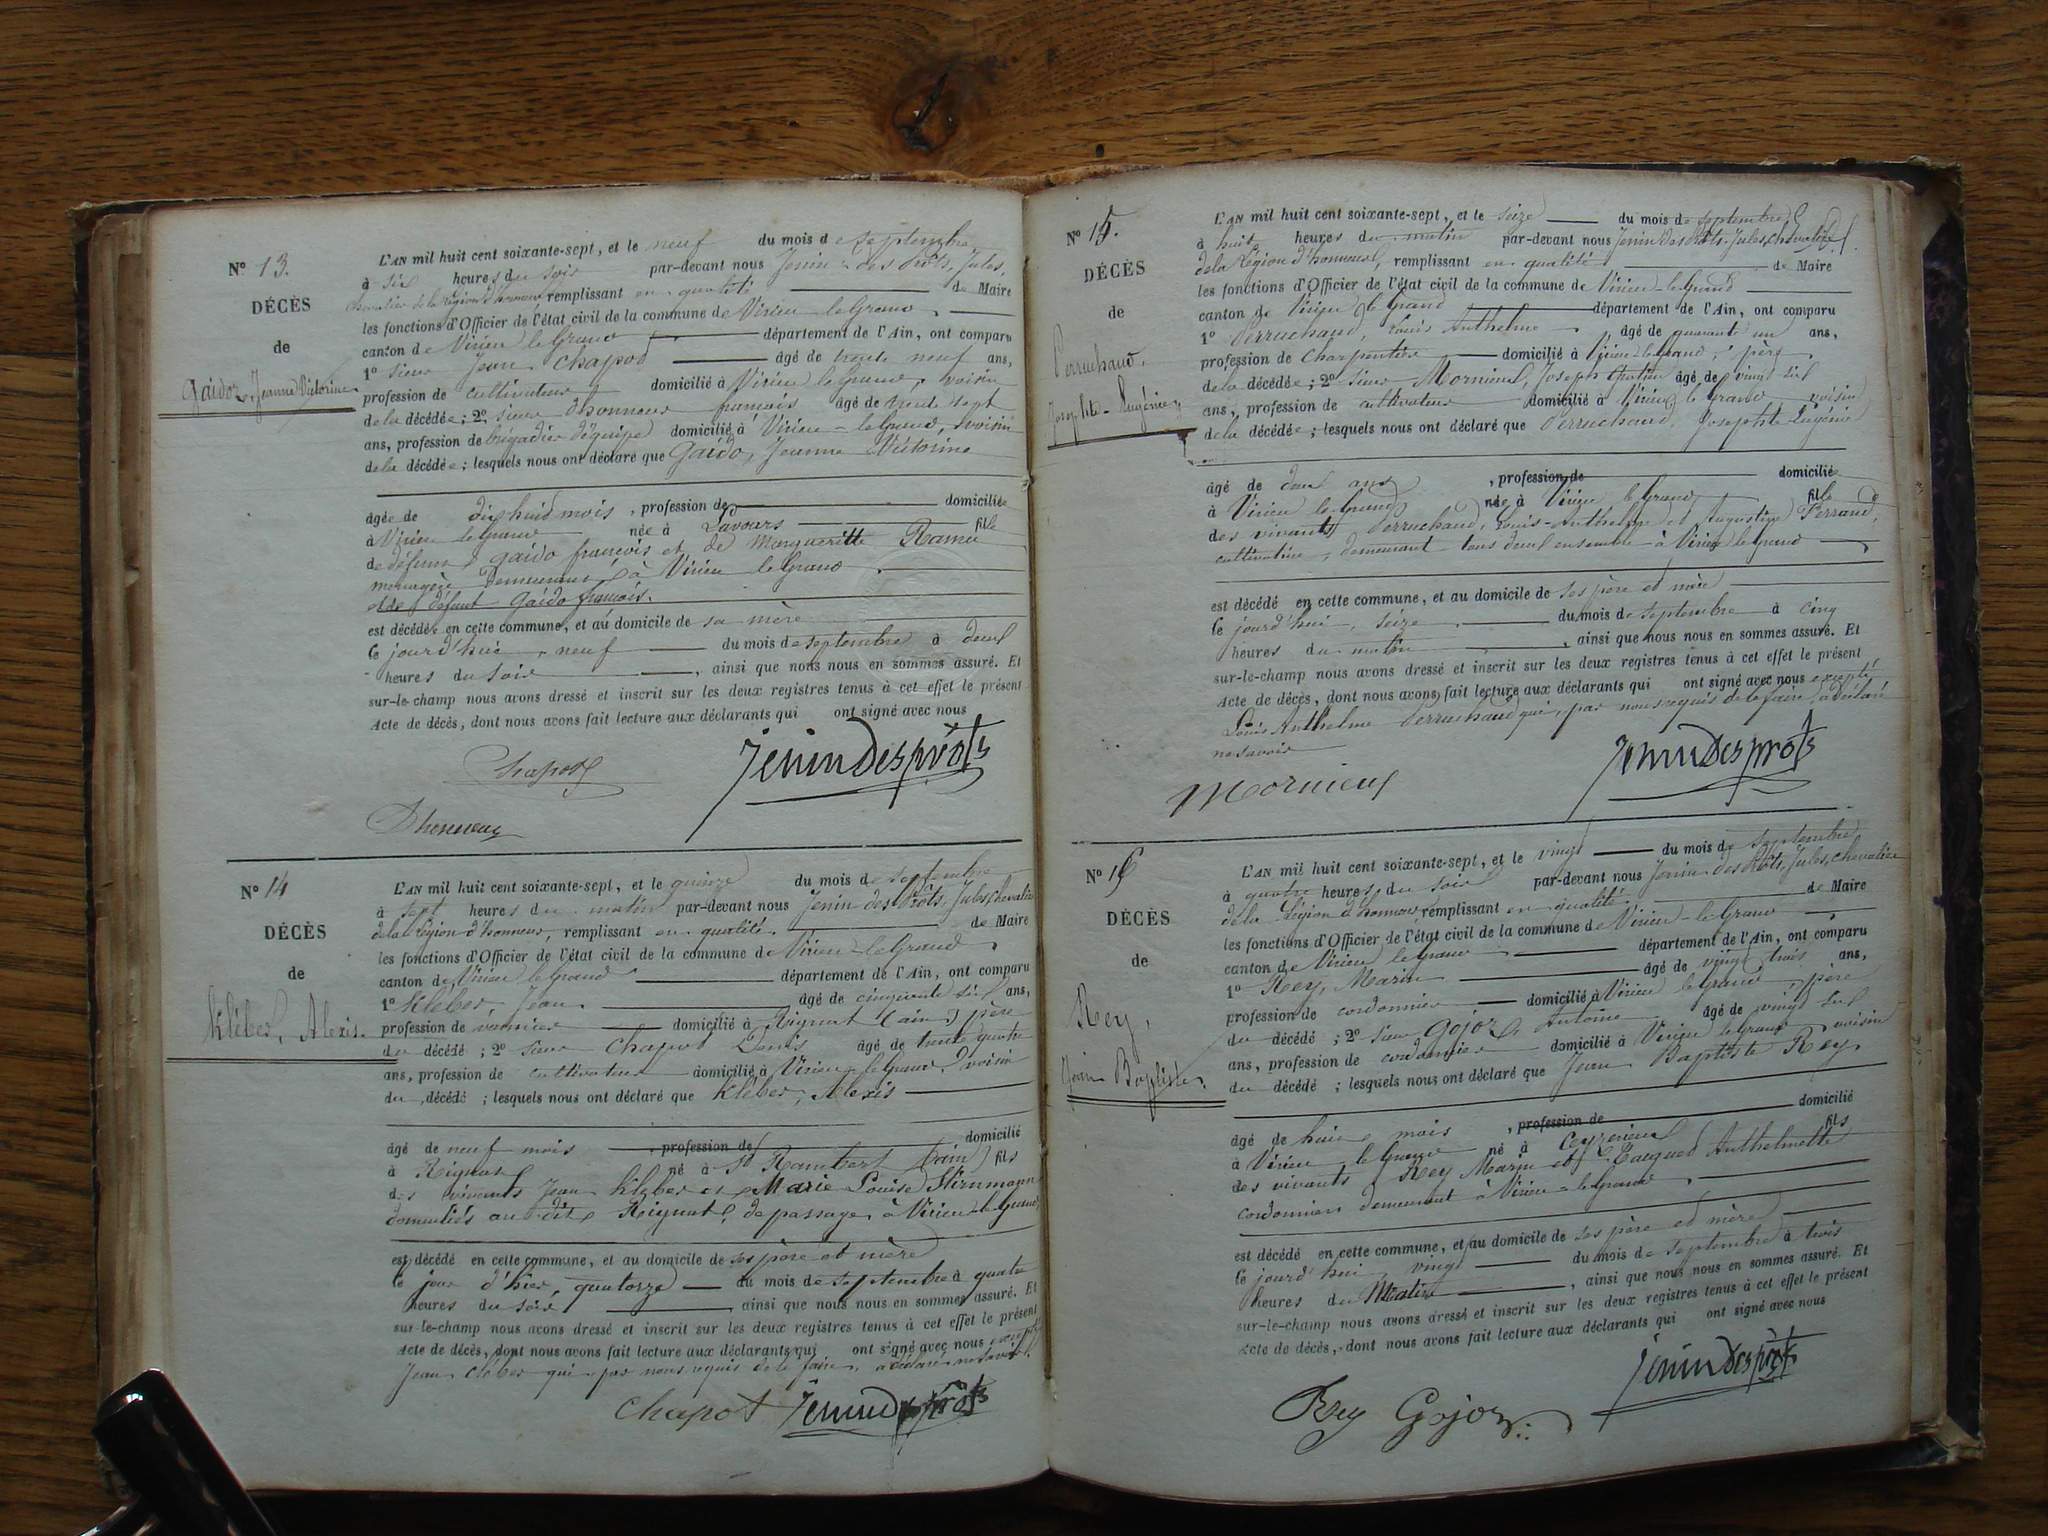 N° 13.
DÉCÈS
de
Gaidoz, Jeanne Victorine
L'AN mil huit cent soixante-sept, et le neuf du mois de septembre
à six heures du soir par-devant nous Jenin des Prôts, Jules,
chevalier de la Légion d'honneur remplissant en qualité de Maire
les fonctions d'Officier de l'état civil de la commune de Virieu-le-Grand,
canton de Virieu le Grand département de l'Ain, ont comparu
1° sieur Jean Chapot âgé de trente neuf ans,
profession de cultivateur domicilié à Virieu le Grand, voisin
de la décédée; 2° sieur Dhonneur français âgé de trente sept
ans, profession de brigadier d'équipe domicilié à Virieu-le-Grand, voisin
de la décédée; lesquels nous ont déclaré que Gaido, Jeanne Victorine
âgée de dix huit mois, profession de domiciliée
à Virieu le Grand née à Lavours fille
de défunt Gaido françois et de Marguerite Ramel
ménagère demeurant à Virieu le Grand.
et de défunt Gaido françois.
est décédée en cette commune, et au domicile de sa mère
le jourd'hui, neuf du mois de septembre à deux
heures du soir, ainsi que nous nous en sommes assuré. Et
sur-le-champ nous avons dressé et inscrit sur les deux registres tenus à cet effet le présent
Acte de décès, dont nous avons fait lecture aux déclarants qui ont signé avec nous
Chapot Jenindesprôts
Dhonneur
N° 14
DÉCÈS
de
Kléber, Alexis.
L'AN mil huit cent soixante-sept, et le quinze du mois de septembre
à sept heures du matin par-devant nous Jenin des Prôts, Jules, chevalier
de la Légion d'honneur, remplissant en qualité. de Maire
les fonctions d'Officier de l'état civil de la commune de Virieu-le-Grand,
canton de Virieu le Grand département de l'Ain, ont comparu
1° Kléber, Jean âgé de cinquante six ans,
profession de vannier domicilié à Rignat (ain) père
du décédé; 2° sieur Chapot Denis âgé de trente quatre
ans, profession de cultivateur domicilié à Virieu-le-Grand, voisin
du décédé; lesquels nous ont déclaré que Kléber, Alexis
âgé de neuf mois, profession de domicilié
à Rignat né à St Rambert (ain) fils
des vivants Jean Kléber et Marie Louise Stirnmann
domiciliés au dit Rignat, de passage à Virieu-le-Grand,
est décédé en cette commune, et au domicile de ses père et mère
le jour d'hier, quatorze du mois de septembre à quatre
heures du soir, ainsi que nous nous en sommes assuré. Et
sur-le-champ nous avons dressé et inscrit sur les deux registres tenus à cet effet le présent
Acte de décès, dont nous avons fait lecture aux déclarants qui ont signé avec nous excepté
Jean Cléber qui, par nous requis de le faire, a déclaré ne savoir.
Chapot Jenindesprôts
N° 15.
DÉCÈS
de
Perruchaud,
Josephte-Eugénie,
L'AN mil huit cent soixante-sept, et le seize du mois de septembre
à huit heures du matin par-devant nous Jenin des Prôts, Jules, chevalier
de la Légion d'honneur, remplissant en qualité de Maire
les fonctions d'Officier de l'état civil de la commune de Virieu-le-Grand
canton de Virieu le Grand département de l'Ain, ont comparu
1° Perruchaud, Louis Anthelme, âgé de quarante un ans,
profession de charpentier domicilié à Virieu-le-Grand, père
de la décédée; 2° sieur Mornieux, Joseph âgé de vingt six
ans, profession de cultivateur domicilié à Virieu le Grand, voisin
de la décédée; lesquels nous ont déclaré que Perruchaud, Josephte Eugénie
âgé de deux ans, profession de domicilié
à Virieu le Grand née à Virieu le Grand, fille
des vivants Perruchaud, Louis-Anthelme et Augustine Perraud,
cultivatrice, demeurant tous deux ensemble à Virieu le Grand
est décédé en cette commune, et au domicile de ses père et mère
le jourd'hui, seize du mois de septembre à cinq
heures du matin, ainsi que nous nous en sommes assuré. Et
sur-le-champ nous avons dressé et inscrit sur les deux registres tenus à cet effet le présent
Acte de décès, dont nous avons fait lecture aux déclarants qui ont signé avec nous excepté
Louis Anthelme Perruchaud qui, par nous requis de le faire, a déclaré
ne savoir
Mornieux Jenindesprôts
N° 16
DÉCÈS
de
Rey,
Jean Baptiste.
L'AN mil huit cent soixante-sept, et le vingt du mois de septembre
à quatre heures du soir par-devant nous Jenin des Prôts, Jules, chevalier
de la Légion d'honneur remplissant en qualité. de Maire
les fonctions d'Officier de l'état civil de la commune de Virieu-le-Grand
canton de Virieu le Grand département de l'Ain, ont comparu
1° Rey, Marin âgé de vingt trois ans,
profession de cordonnier domicilié à Virieu le Grand, père
du décédé; 2° sieur Gojoz Antoine âgé de vingt six
ans, profession de cordonnier domicilié à Virieu le Grand voisin
du décédé; lesquels nous ont déclaré que Jean Baptiste Rey
âgé de huit mois, profession de domicilié
à Virieu le Grand né à Ceyzerieux fils
des vivants Rey Marin et Anthelmette
cordonniers demeurant à Virieu-le-Grand.
est décédé en cette commune, et au domicile de ses père et mère
le jourd'hui, vingt du mois de septembre à trois
heures du Matin, ainsi que nous nous en sommes assuré. Et
sur-le-champ nous avons dressé et inscrit sur les deux registres tenus à cet effet le présent
Acte de décès, dont nous avons fait lecture aux déclarants qui ont signé avec nous
Jenindesprôts
Rey Gojoz